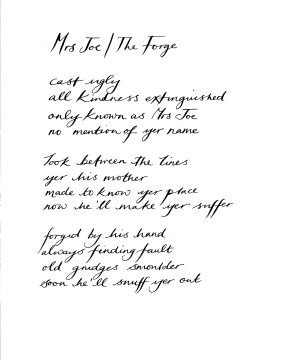 Mrs Joe / The Forge
cast ugly
all kindness extinguished
only known as Mrs Joe
no mention of yer name
Look between the lines
yer his mother
made to know yer place
now he'll make yer suffer
forged by his hand
always finding fault
old grudges smoulder
soon he'll snuff yer out